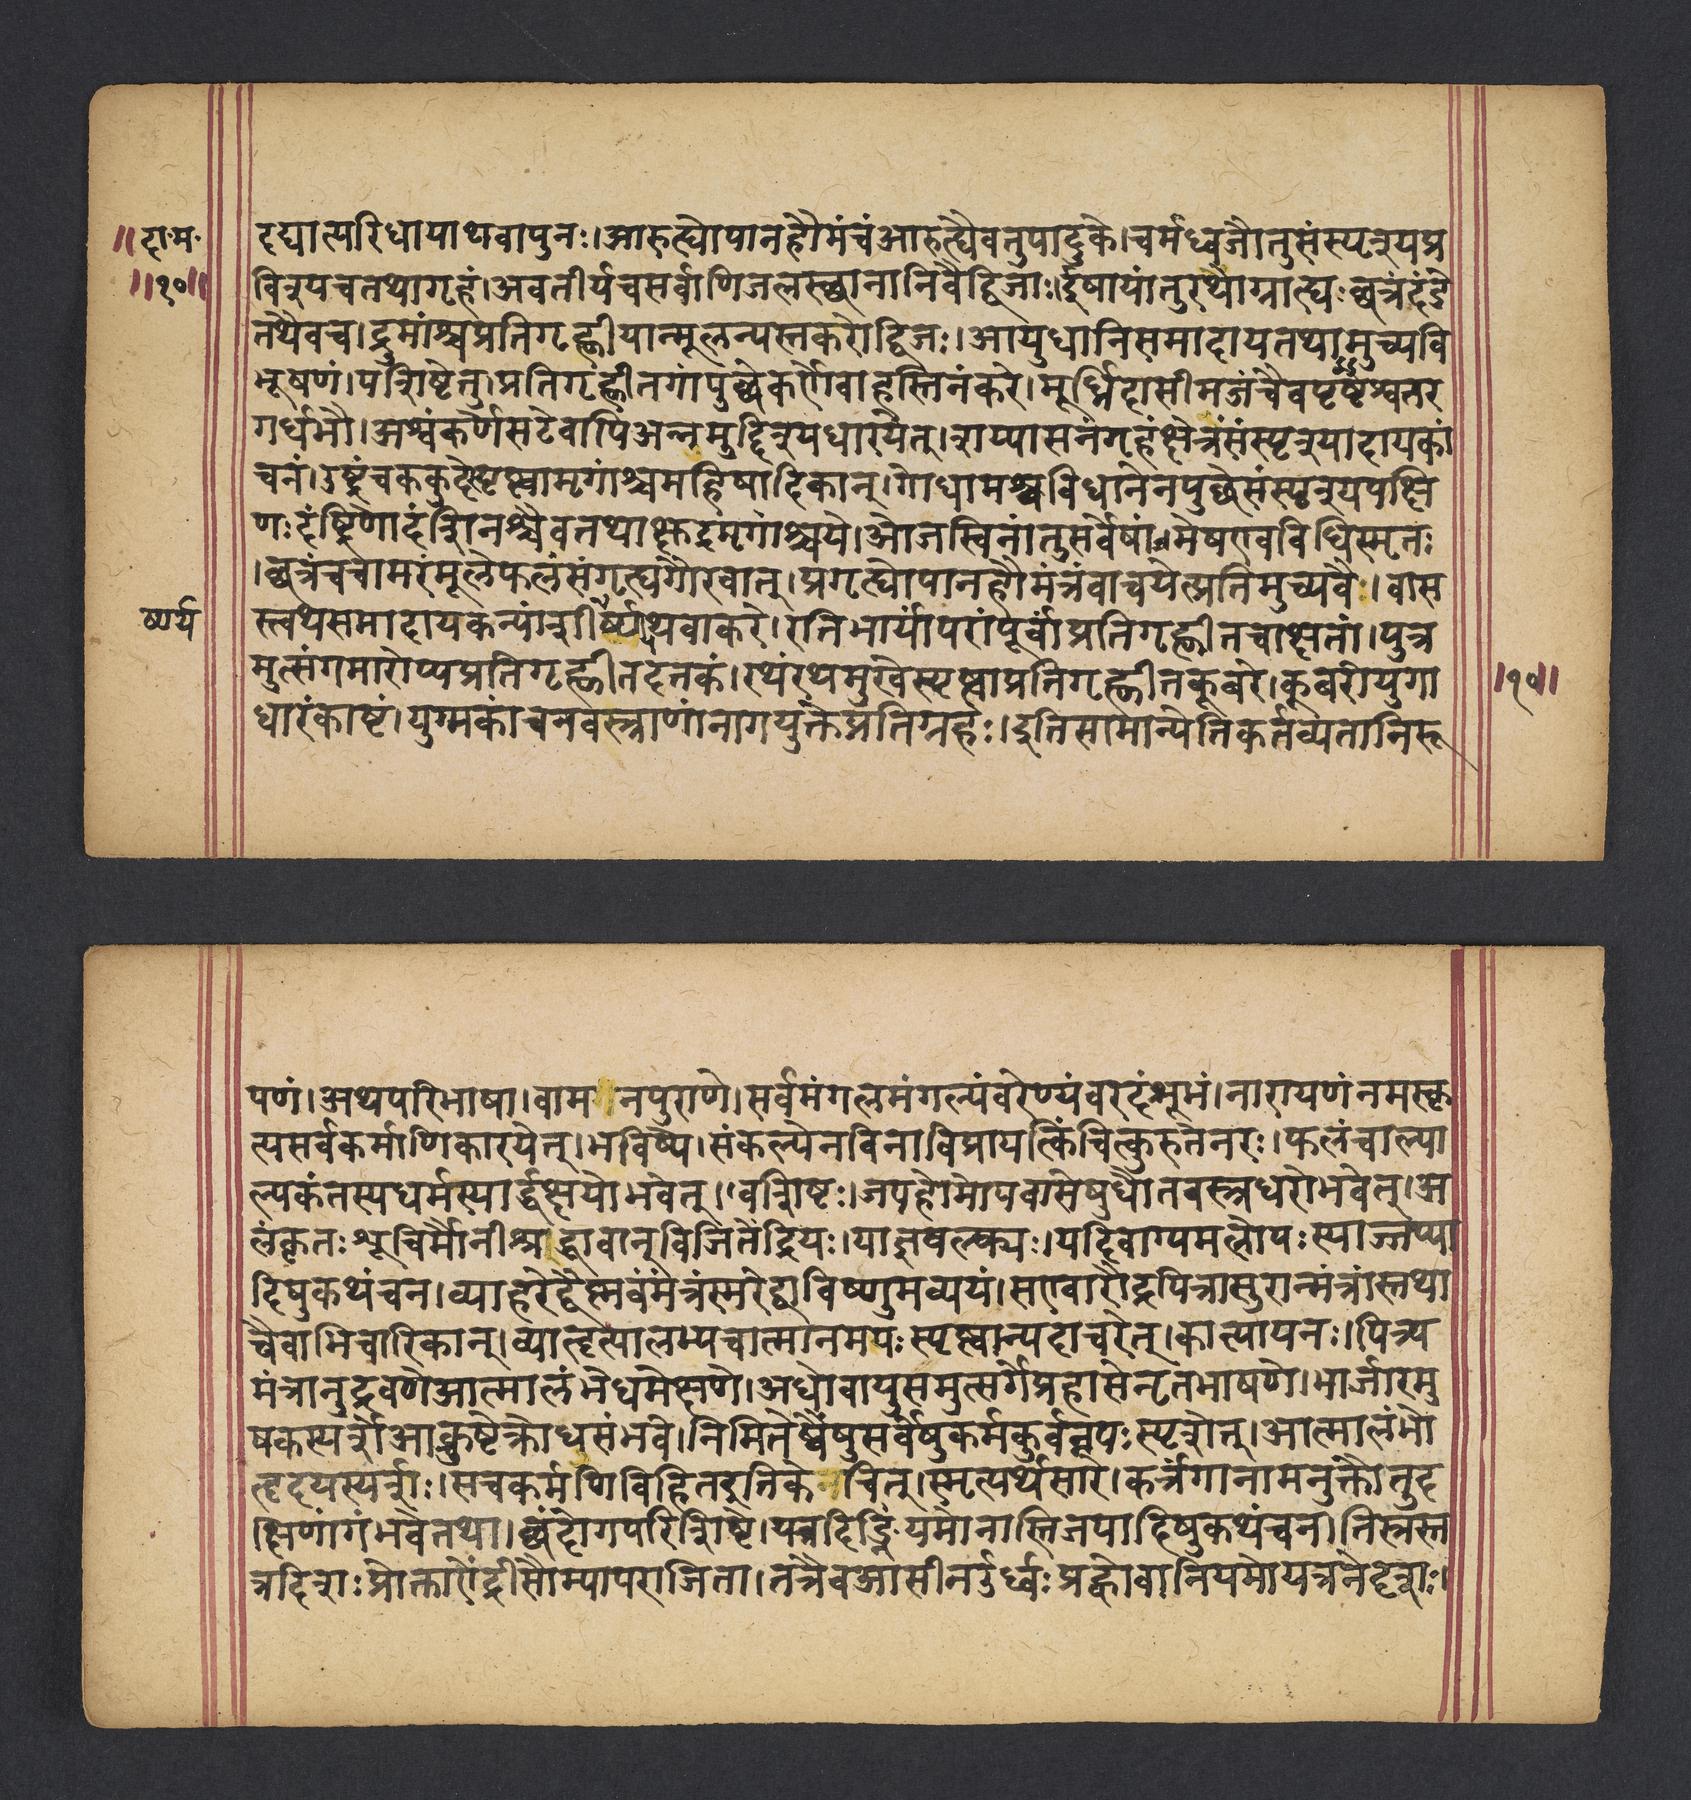 ॥दा॰म॰
॥१०॥
दद्यात्परिधायाथवापुनः।आरुह्योपानहौमंचंआरुह्यैवतुपादुके।चर्मध्वजौतुसंस्पृश्यप्र
विश्यचतथागृहं।अवतीर्यचसर्वाणिजलस्छानानिवैद्विजाः।ईषायांतुरथोग्राह्यःछत्रंदंडे
तथैवच।द्रुमांश्चप्रतिगृह्णीयान्मूलन्यस्तकरोद्विजः।आयुधानिसमादायतथामुच्यवि
भूषणं।परिशिष्टेतु।प्रतिगृह्णीतगांपुछेकर्णेवाहस्तिनंकरे।मूर्ध्निदासीमजंचैवपृष्टेश्वतर
गर्धभौ।अश्वंकर्णेसटेवापिअन्नमुद्दिश्यधारयेत्।शय्यासनंगृहंक्षेत्रंसंस्पृश्यादायकां
चनं।उष्ट्रंचककुदेस्पृष्ट्वामृगांश्चमहिषादिकान्।गोधामश्वविधानेनपुछेसंस्पृश्यपक्षि
णःदंष्ट्रिणोदंशिनश्चैवतथाक्षुद्रमृगाश्चये।ओजस्विनांतुसर्वेषांमेषएवविधिस्मृतः
।छत्रंचचामरंमूलंफलंसंगृह्यगौरवात्।प्रगृह्योपानहौमंत्रंवाचयेत्प्रतिमुच्यवै।वास
ष्पर्य
स्त्वथसमादायकन्यांशीर्ष्ण्यथवाकरे।रतिभार्यांपरांपूर्वांप्रतिगृह्णीतचाक्षतां।पुत्र
मुत्संगमारोप्यप्रतिगृह्णीतदत्तकं।रथंरथमुखेस्पृष्ट्वाप्रतिगृह्णीतकूबरे।कूबरोयुगा
धारंकाष्टं।युग्मकांचनवस्त्राणांनागयुक्तेप्रतिग्रहः।इतिसामान्येतिकर्तव्यतानिरू
॥१०॥
पणं।अथपरिभाषा।वामनपुराणे।सर्वमंगलमंगल्यंवरेण्यंवरदंशुभं।नारायणंनमस्कृ
त्यसर्वकर्माणिकारयेत्।भविष्ये।संकल्पेनविनाविप्रायत्किंचित्कुरुतेनरः।फलंचाल्पा
ल्पकंतस्यधर्मस्यार्द्धक्षयोभवेत्।वशिष्टः।जपहोमोपवासेषुधौतवस्त्रधरोभवेत्।अ
लंकृतःशुचिर्मौनीश्रद्धावान्विजितेंद्रियः।याज्ञवल्क्यः।यदिवाग्यमलोपःस्याज्जप्या
दिषुकथंचन।व्याहरेद्वैष्णवंमंत्रंस्मरेद्वाविष्णुमव्ययं।सएवारौद्रपित्रासुरान्मंत्रांस्तथा
चैवाभिचारिकान्।व्याहृत्यालभ्यचात्मानमपःस्पृष्ट्वान्यदाचरेत्।कात्यायनः।पित्र्य
मंत्रानुद्रवणेआत्मालंभेधमेक्षणे।अधोवायुसमुत्सर्गेप्रहासेनृतभाषणे।मार्जारमु
षकस्पर्शेआक्रुष्टेक्रोधसंभवे।निमित्तेष्वेषुसर्वेषुकर्मकुर्वन्नपःस्पृशेत्।आत्मालंभो
हृदयस्पर्शः।सचकर्मणिविहितइतिकेचित्।स्मृत्यर्थसारे।कर्त्रंगानामनुक्तौतुद
क्षिणांगंभवेत्तथा।छंदोगपरिशिष्टे।यत्रदिङ्नियमोनास्तिजपादिषुकथंचन।तिस्रस्त
त्रदिशःप्रोक्ताऐंद्रीसौम्यापराजिता।तत्रैवआसीनऊर्ध्वःप्रह्वोवानियमोयत्रनेदृशः।